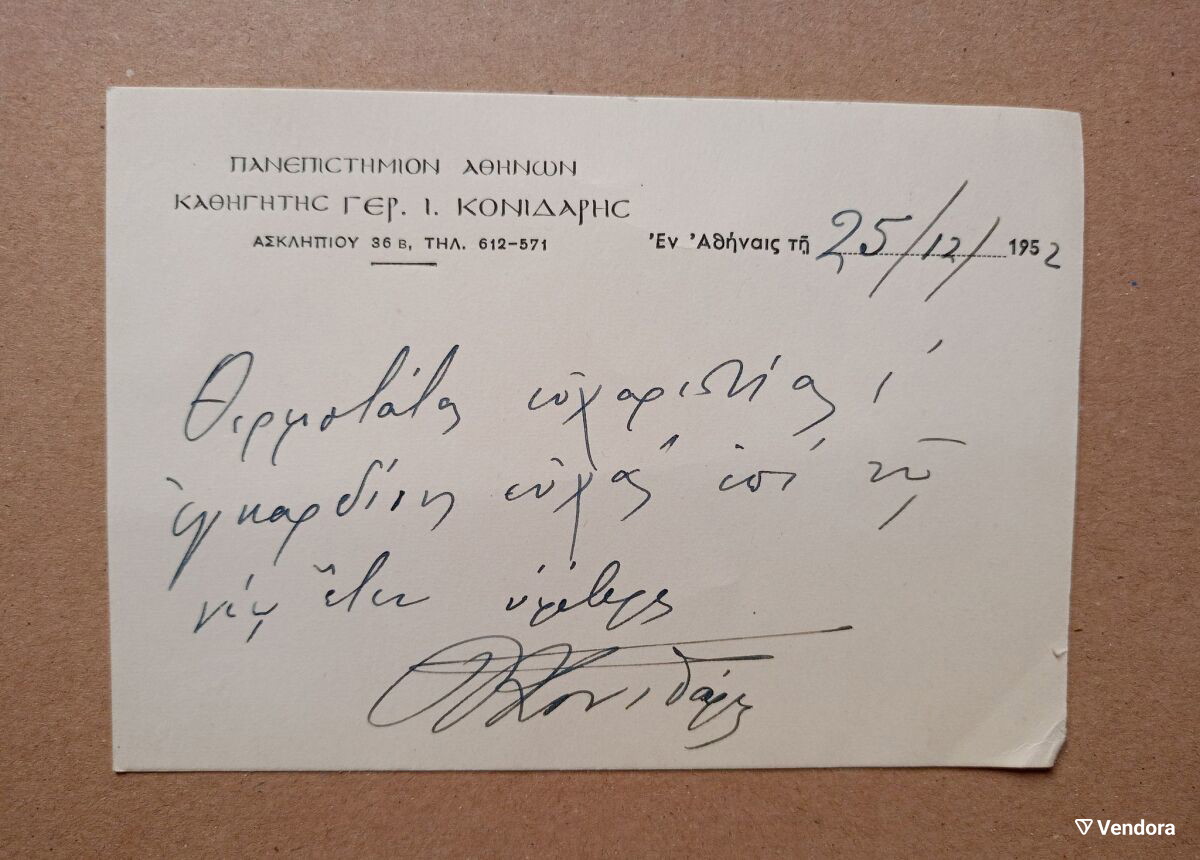 ΠΑΝΕΠΙΣΤΗΜΙΟΝ ΑΘΗΝΩΝ
ΚΑΘΗΓΗΤΗΣ ΓΕΡ. Ι. ΚΟΝΙΔΑΡΗΣ
ΑΣΚΛΗΠΙΟΥ 36 Β, ΤΗΛ. 612-571
Ἐν Ἀθήναις τῇ 25/12/1952
Θερμοτάτας εὐχαριστίας
ἐγκαρδίους εὐχὰς ἐπὶ τῷ
νέῳ ἔτει ὑμέτερος
Κονιδάρης
Vendora